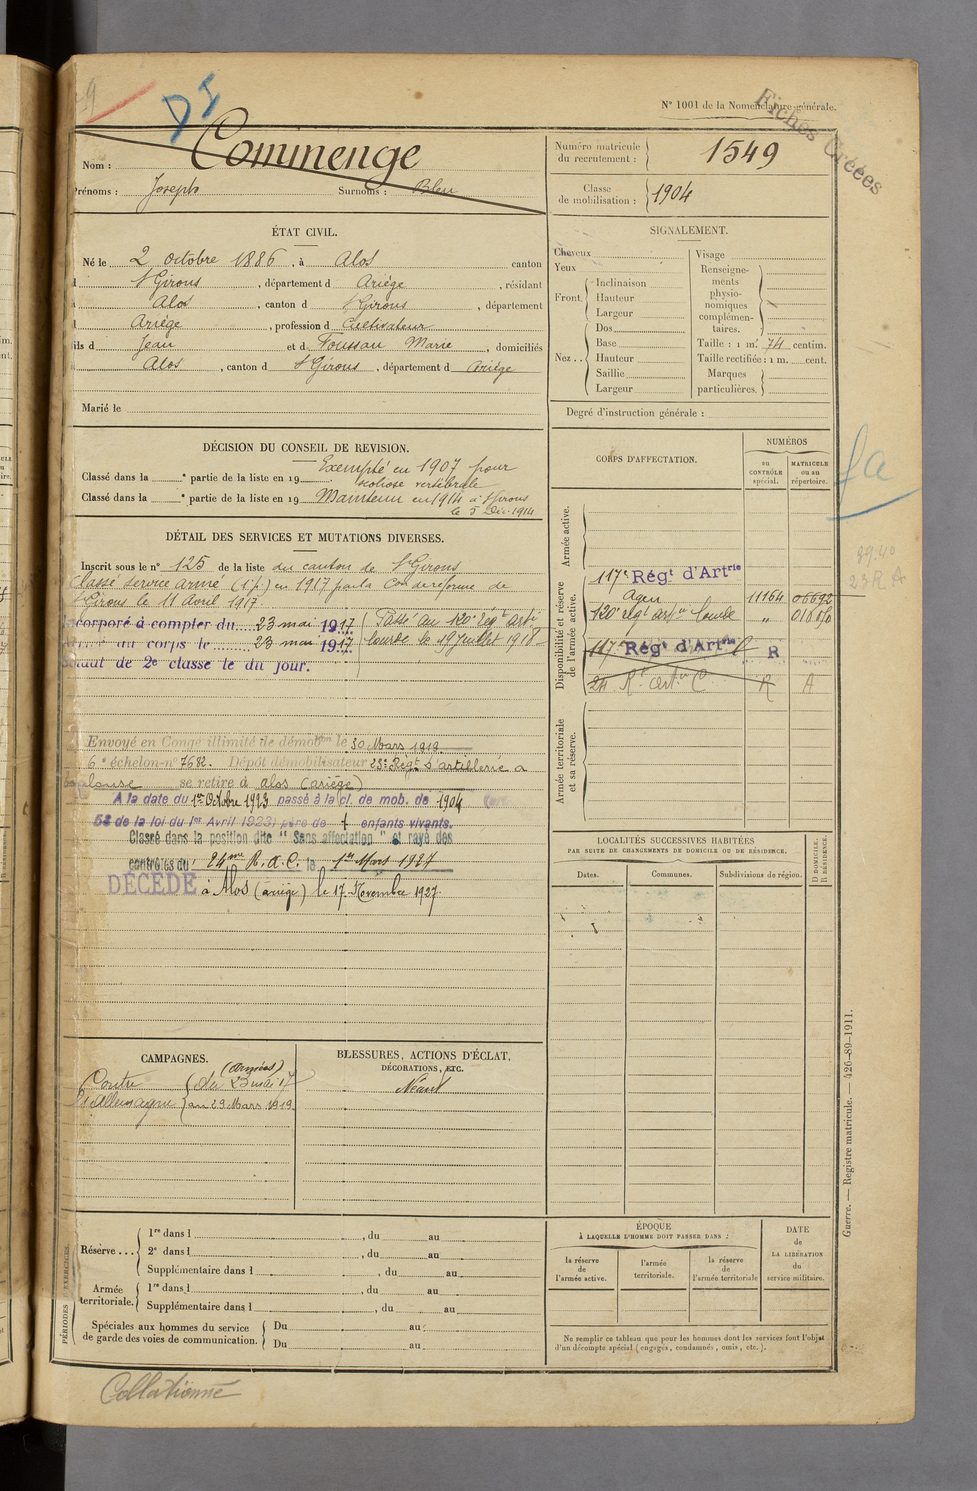 N° 1001 de la Nomenclature générale.
Fiches Créées
Nom : Commenge
Prénoms : Joseph Surnoms : Bleu
Numéro matricule du recrutement : 1549
Classe de mobilisation : 1904
ÉTAT CIVIL.
Né le 2 octobre 1886, à Alos canton
d St Girons, département d Ariége, résidant
à Alos, canton d St Girons, département
d Ariége, profession d Cultivateur
fils d Jean et d Toussau Marie, domiciliés
à Alos, canton d St Girons, département d Ariége
Marié le
SIGNALEMENT.
Cheveux
Yeux
Front. Inclinaison
Hauteur
Largeur
Nez . . Dos
Base
Hauteur
Saillie
Largeur
Visage
Renseigne-
ments
physio-
nomiques
complémen-
taires.
Taille : 1 m. 74 centim.
Taille rectifiée : 1 m. cent.
Marques
particulières.
Degré d'instruction générale :
DÉCISION DU CONSEIL DE REVISION.
Exempté en 1907 pour
Classé dans la e partie de la liste en 19
scoliose vertébrale
Classé dans la e partie de la liste en 19 Maintenu en 1914 à St Girons
le 5 Déc. 1914
DÉTAIL DES SERVICES ET MUTATIONS DIVERSES.
Inscrit sous le n° 125 de la liste du canton de St Girons
Classé service armé (1 p.) en 1917 par la Con de réforme de
St Girons le 11 avril 1917
Incorporé à compter du 23 mai 1917
Arrivé au corps le 23 mai 1917
Soldat de 2e classe le du jour.
Passé au 120e Régt Artie
lourde le 19 Juillet 1918
Envoyé en Congé illimité de démobon le 30 Mars 1919
6e échelon n° 7682. Dépôt démobilisateur 23e Régt d'artillerie a
Toulouse se retire à Alos (ariége)
A la date du 1er Octobre 1923 passé à la cl. de mob. de 1904 (art
58 de la loi du 1er Avril 1923) père de 1 enfants vivants.
Classé dans la position dite "Sans affectation" et rayé des
contrôles du 24me R.A.C. le 1er Mars 1927
DÉCÉDÉ à Alos (ariége) le 17 Novembre 1927
CORPS D'AFFECTATION.
NUMÉROS
au CONTRÔLE spécial.
MATRICULE ou au répertoire.
Armée active.
Disponibilité et réserve de l'armée active.
117e Régt d'Artrie
Agen 11164 06692
120e régt artie lourde "
117e Régt d'Artrie R
24 Rt Artie C R A
Armée territoriale et sa réserve.
LOCALITÉS SUCCESSIVES HABITÉES
PAR SUITE DE CHANGEMENTS DE DOMICILE OU DE RÉSIDENCE.
Dates. Communes. Subdivisions de région.
D DOMICILE.
R RÉSIDENCE.
CAMPAGNES.
(Armées)
Contre
l'Allemagne
du 23 mai 17
au 29 Mars 1919.
BLESSURES, ACTIONS D'ÉCLAT,
DÉCORATIONS, ETC.
Néant
PÉRIODES D'EXERCICES.
Réserve . . . 1re dans l , du au
2e dans l , du au
Supplémentaire dans l , du au
Armée territoriale. 1re dans l , du au
Supplémentaire dans l , du au
Spéciales aux hommes du service de garde des voies de communication.
Du au
Du au
ÉPOQUE
À LAQUELLE L'HOMME DOIT PASSER DANS :
la réserve de l'armée active.
l'armée territoriale.
la réserve de l'armée territoriale
DATE de LA LIBÉRATION du service militaire.
Ne remplir ce tableau que pour les hommes dont les services font l'objet
d'un décompte spécial (engagés, condamnés, omis, etc.).
Guerre. — Registre matricule. — 426-89-1911.
Collationné